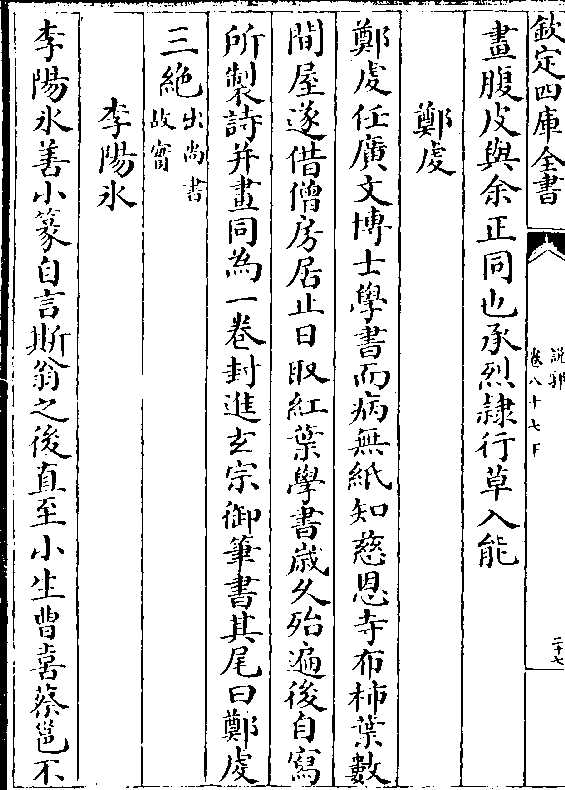 欽定四庫全書
說郛
卷八十七下
二十七
畫腹皮與余正同也承烈隸行草入能
鄭虔
鄭虔任廣文博士學書而病無紙知慈恩寺布柿葉數
間屋遂借僧房居止日取紅葉學書歲久殆遍後自寫
所製詩并畫同為一卷封進玄宗御筆書其尾曰鄭虔
三絶出尚書故實
李陽氷
李陽氷善小篆自言斯翁之後直至小生曹喜蔡邕不